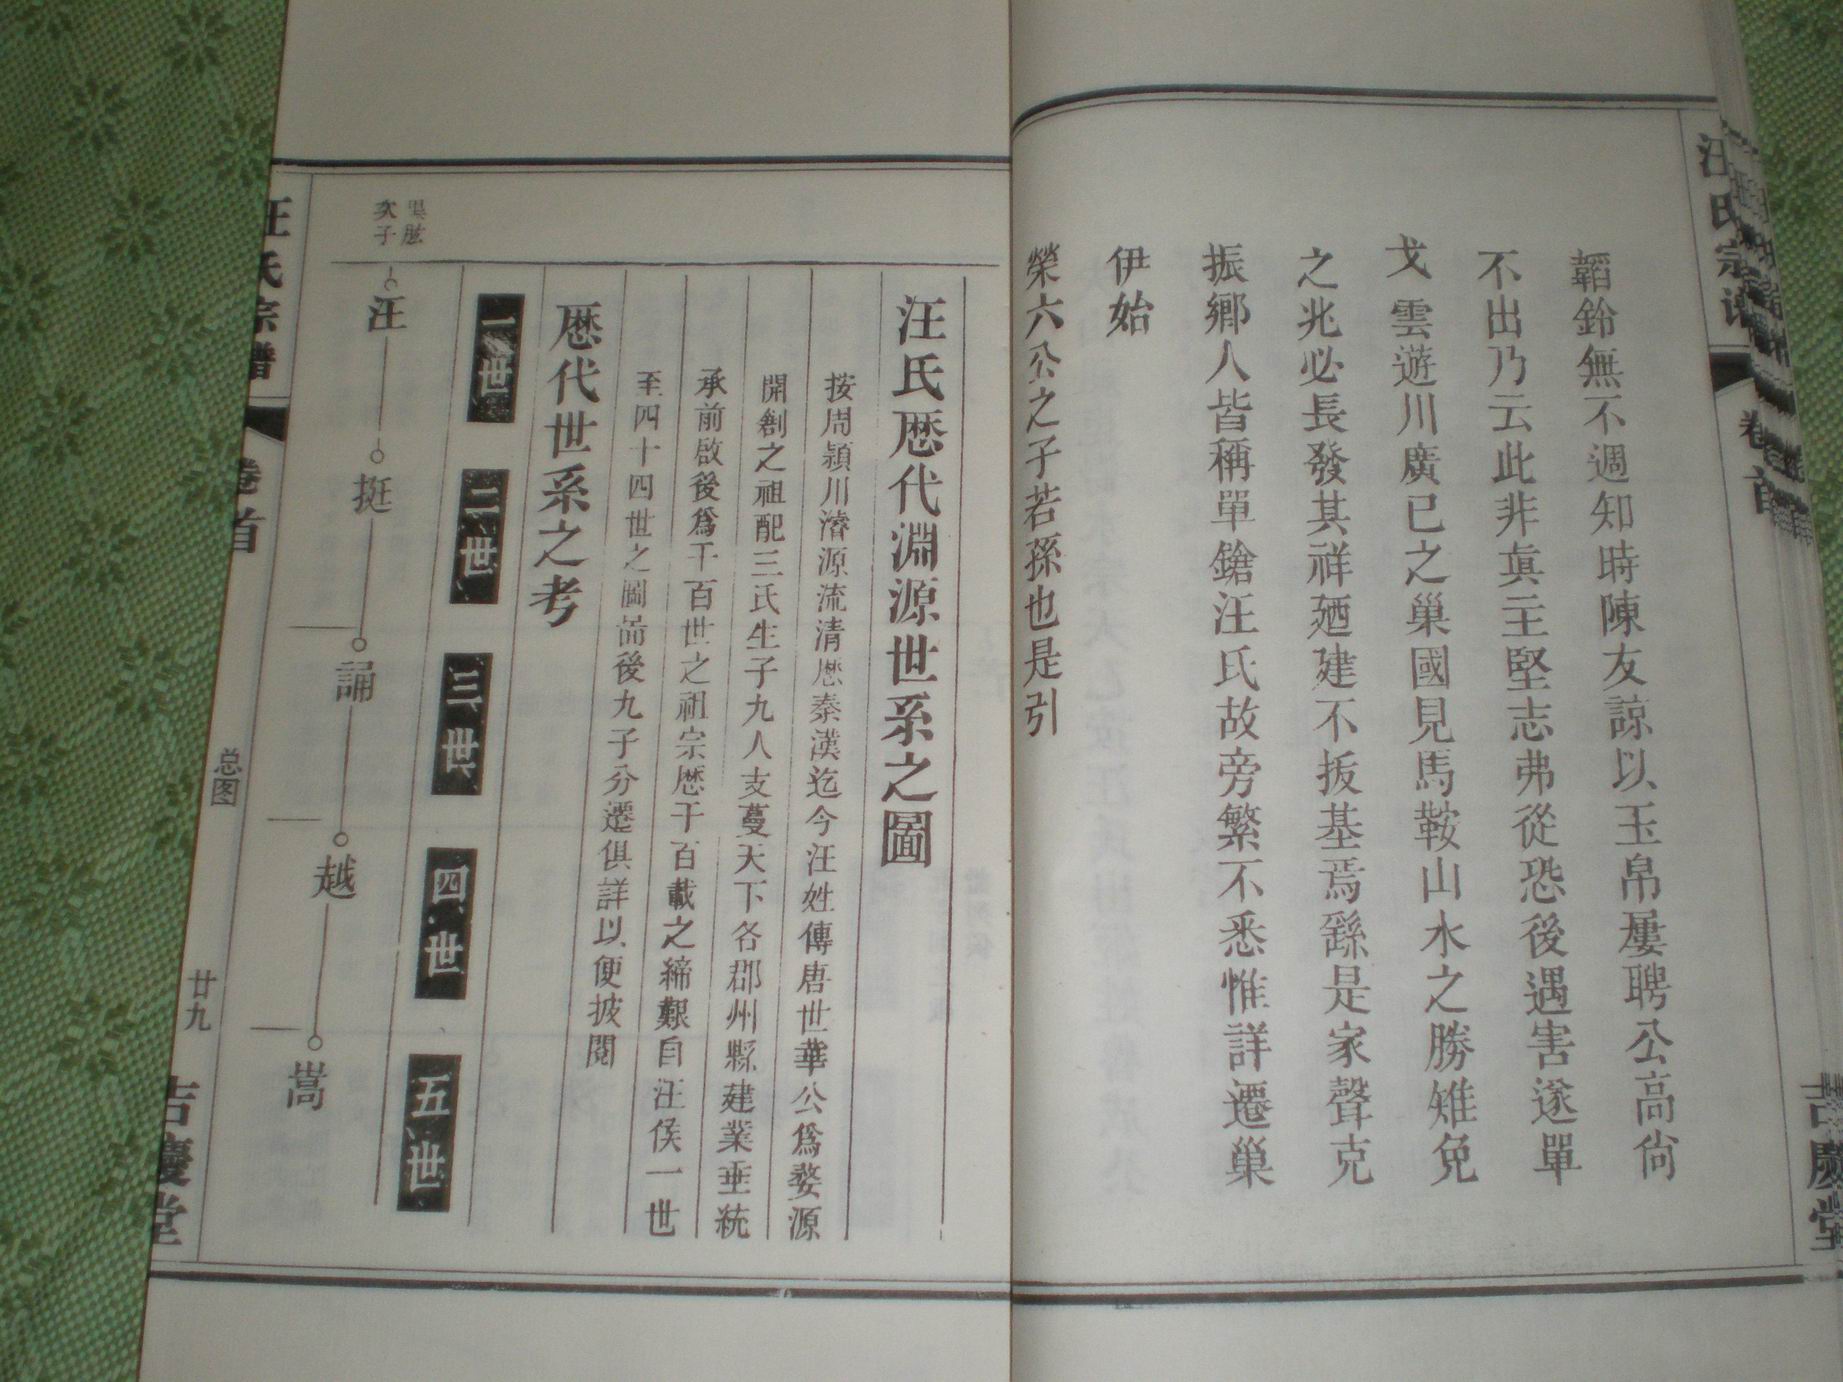 汪氏宗譜
卷首
吉慶堂
韜鈴無不週知時陳友諒以玉帛屢聘公高尙
不出乃云此非眞主堅志弗從恐後遇害遂單
戈雲遊川廣已之巢國見馬鞍山水之勝雉免
之兆必長發其祥廼建不扳基焉繇是家聲克
振鄉人皆稱單鎗汪氏故旁繁不悉惟詳遷巢
伊始
榮六公之子若孫也是引
汪氏厯代淵源世系之圖
按周潁川濬源流清厯秦漢迄今汪姓傳唐世華公爲婺源
開創之祖配三氏生子九人支蔓天下各郡州縣建業垂統
承前啟後爲千百世之祖宗厯千百載之締艱自汪侯一世
至四十四世之圖耑後九子分遷俱詳以便披閱
厯代世系之考
一世 二世 三世 四世 五世
次子
汪 挺 誦 越 嵩
汪氏宗譜
卷首
总图
廿九
吉慶堂